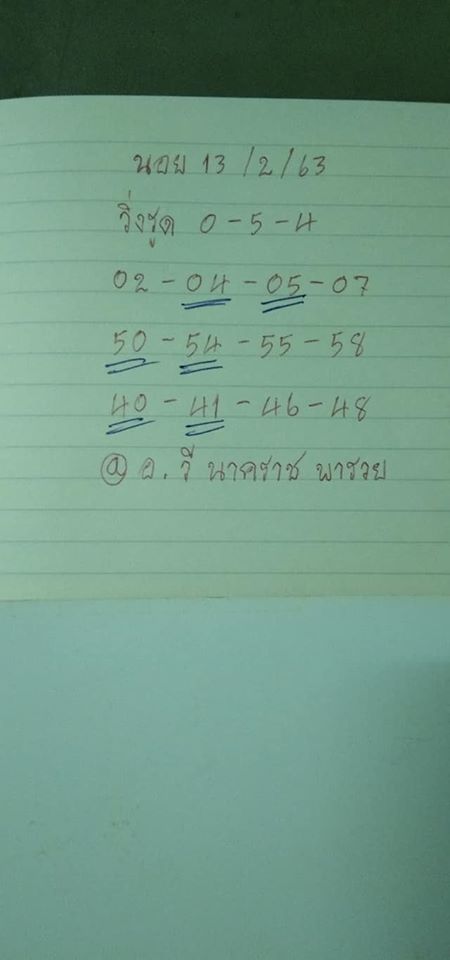 นอย 13/2/63
วิ่งชูด 0-5-4
02-04-05-07
50-54-55-58
40-41-46-48
@ อ. วี นาคราช พารวย